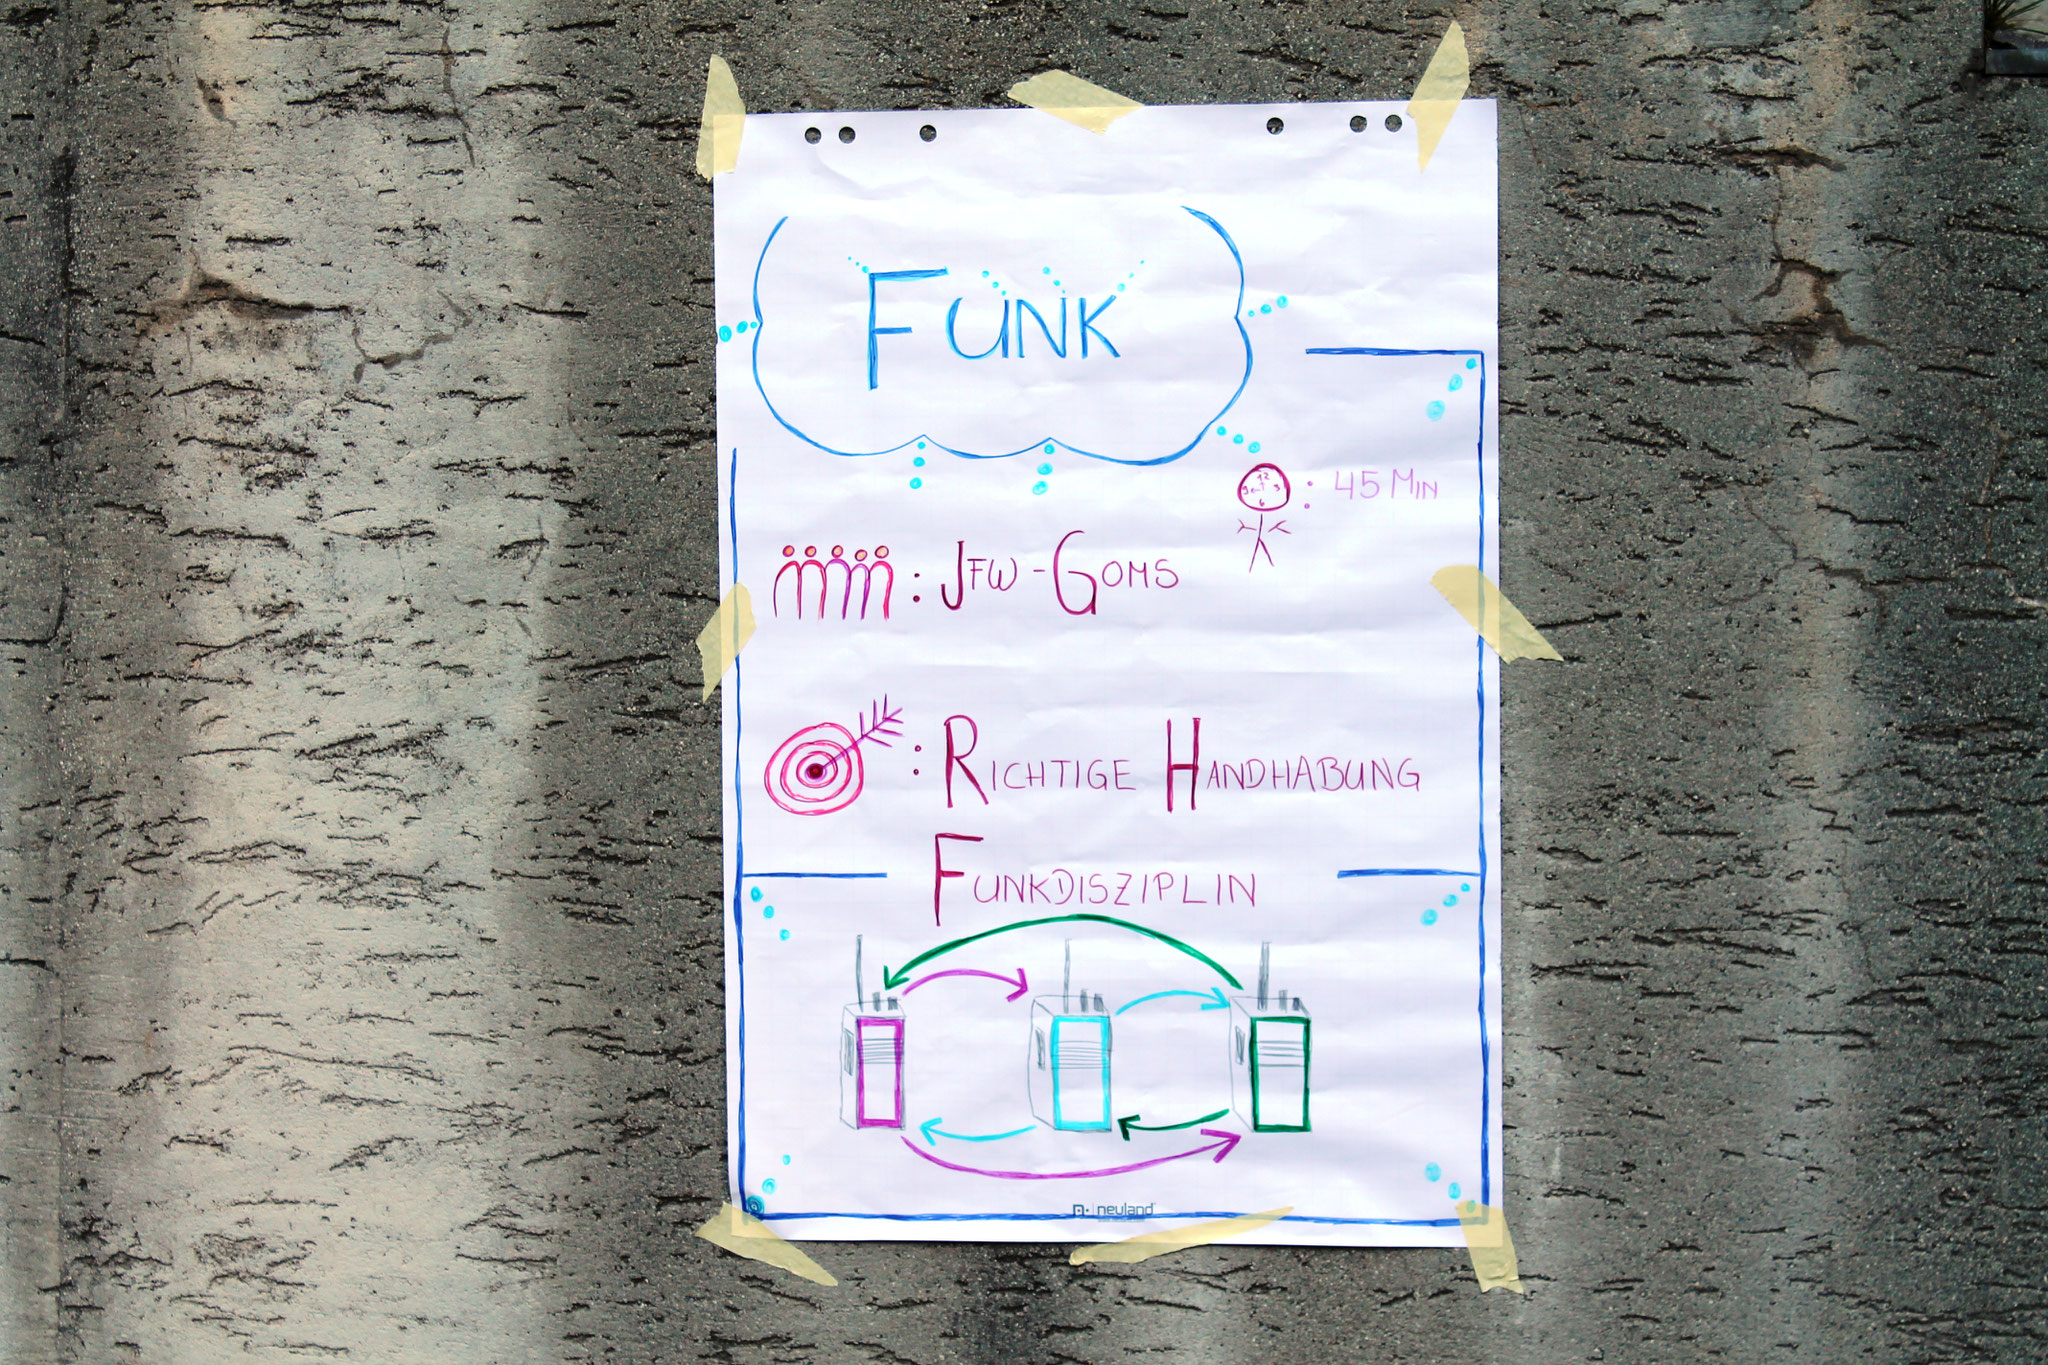 FUNK
: 45 MIN
: JFW - GOMS
: RICHTIGE HANDHABUNG
FUNKDISZIPLIN
neuland